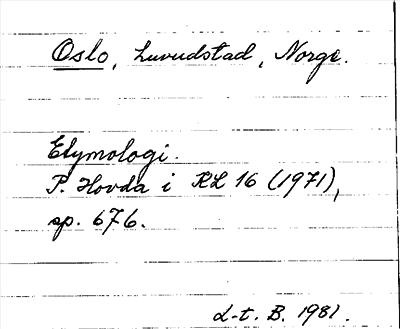 Oslo, huvudstad, Norge.
Etymologi.
P. Hovda i KL 16 (1971),
sp. 676.
L-t. B. 1981.